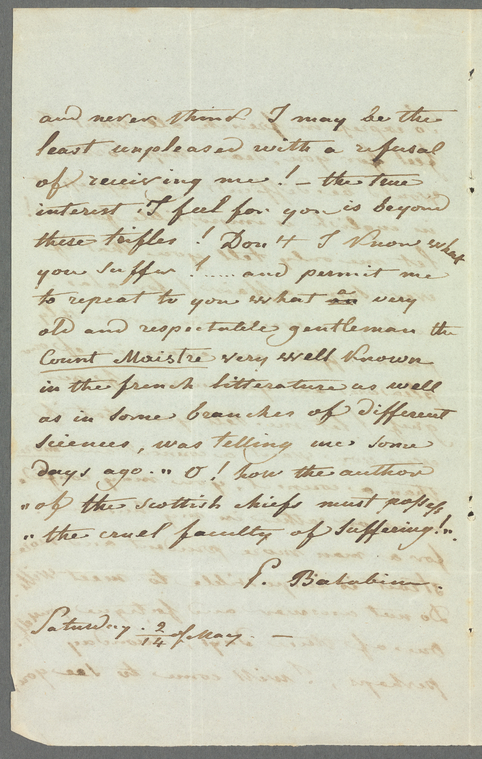 and never think I may be the
least unpleased with a refusal
of receiving me! – the true
interest I feel for you is beyond
these trifles! Don't I know what
you suffer! ..... and permit me
to repeat to you what an very
old and respectable gentleman the
Count Maistre very well known
in the french litterature as well
as in some branches of different
sciences, was telling me some
days ago. „ O! how the author
„ of the scottish chiefs must possess
„ the cruel faculty of suffering!„.
P. Balabin.
Saturday. 2/14 of May –